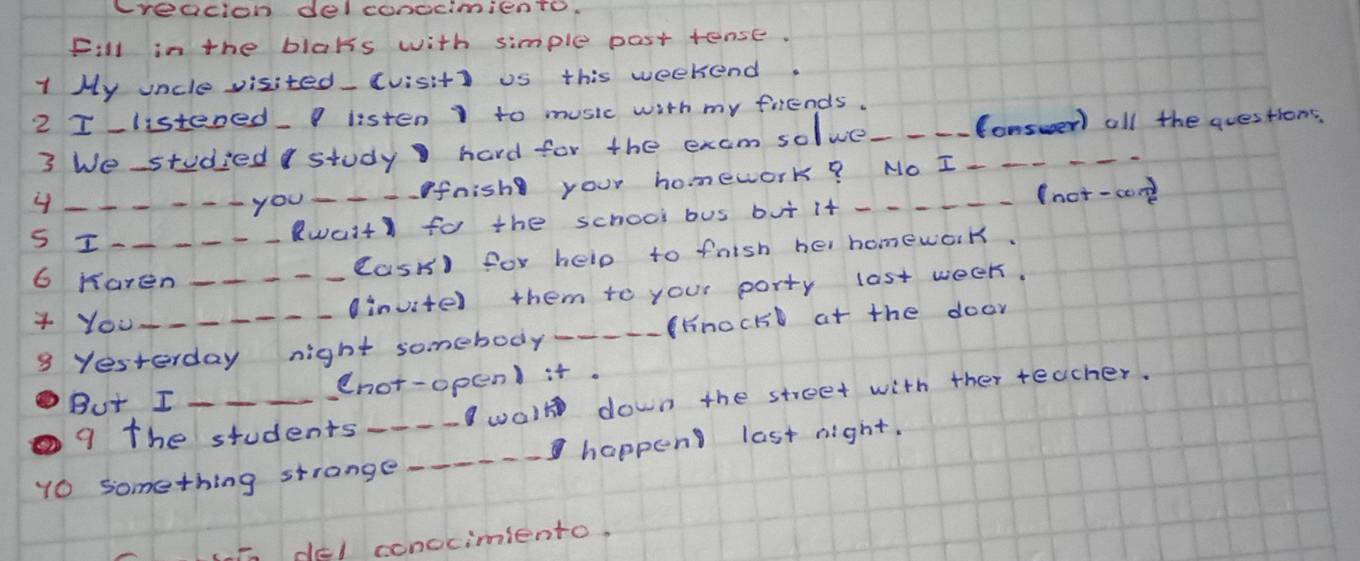 Creacion del conocimiento.
Fill in the blaks with simple past tense.
1 My uncle visited_ (visit) us this weekend.
2 I _listened_ (listen) to music with my friends.
3 We _studied (study) hard for the exam so we_ _ _ _ (answer) all the questions.
4 _ _ _ _ _ _ you _ _ _ _ (fnish) your homework? No I _ _ _ _ _ _.
5 I _ _ _ _ _ _ (wait) for the school bus but it _ _ _ _ _ _ (not-come)
6 Karen _ _ _ _ _ (ask) for help to fnish her homework.
7 You _ _ _ _ _ _ _ (invite) them to your party last week.
8 Yesterday night somebody _ _ _ _ _ (knock) at the door
But I _ _ _ _ _ (not-open) it.
9 The students _ _ _ _ (walk) down the street with ther teacher.
10 something strange _ _ _ _ _ _ (happen) last night.
del conocimiento.